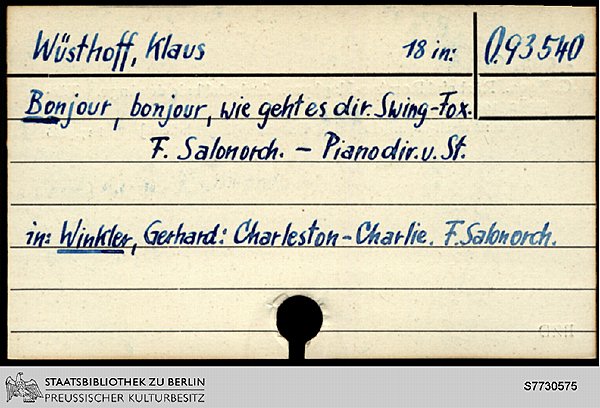 Wüsthoff, Klaus 18 in: O.93540
Bonjour, bonjour, wie geht es dir. Swing-Fox.
F. Salonorch. – Pianodir. u. St.
in: Winkler, Gerhard: Charleston-Charlie. F. Salonorch.
STAATSBIBLIOTHEK ZU BERLIN
PREUSSISCHER KULTURBESITZ
S7730575